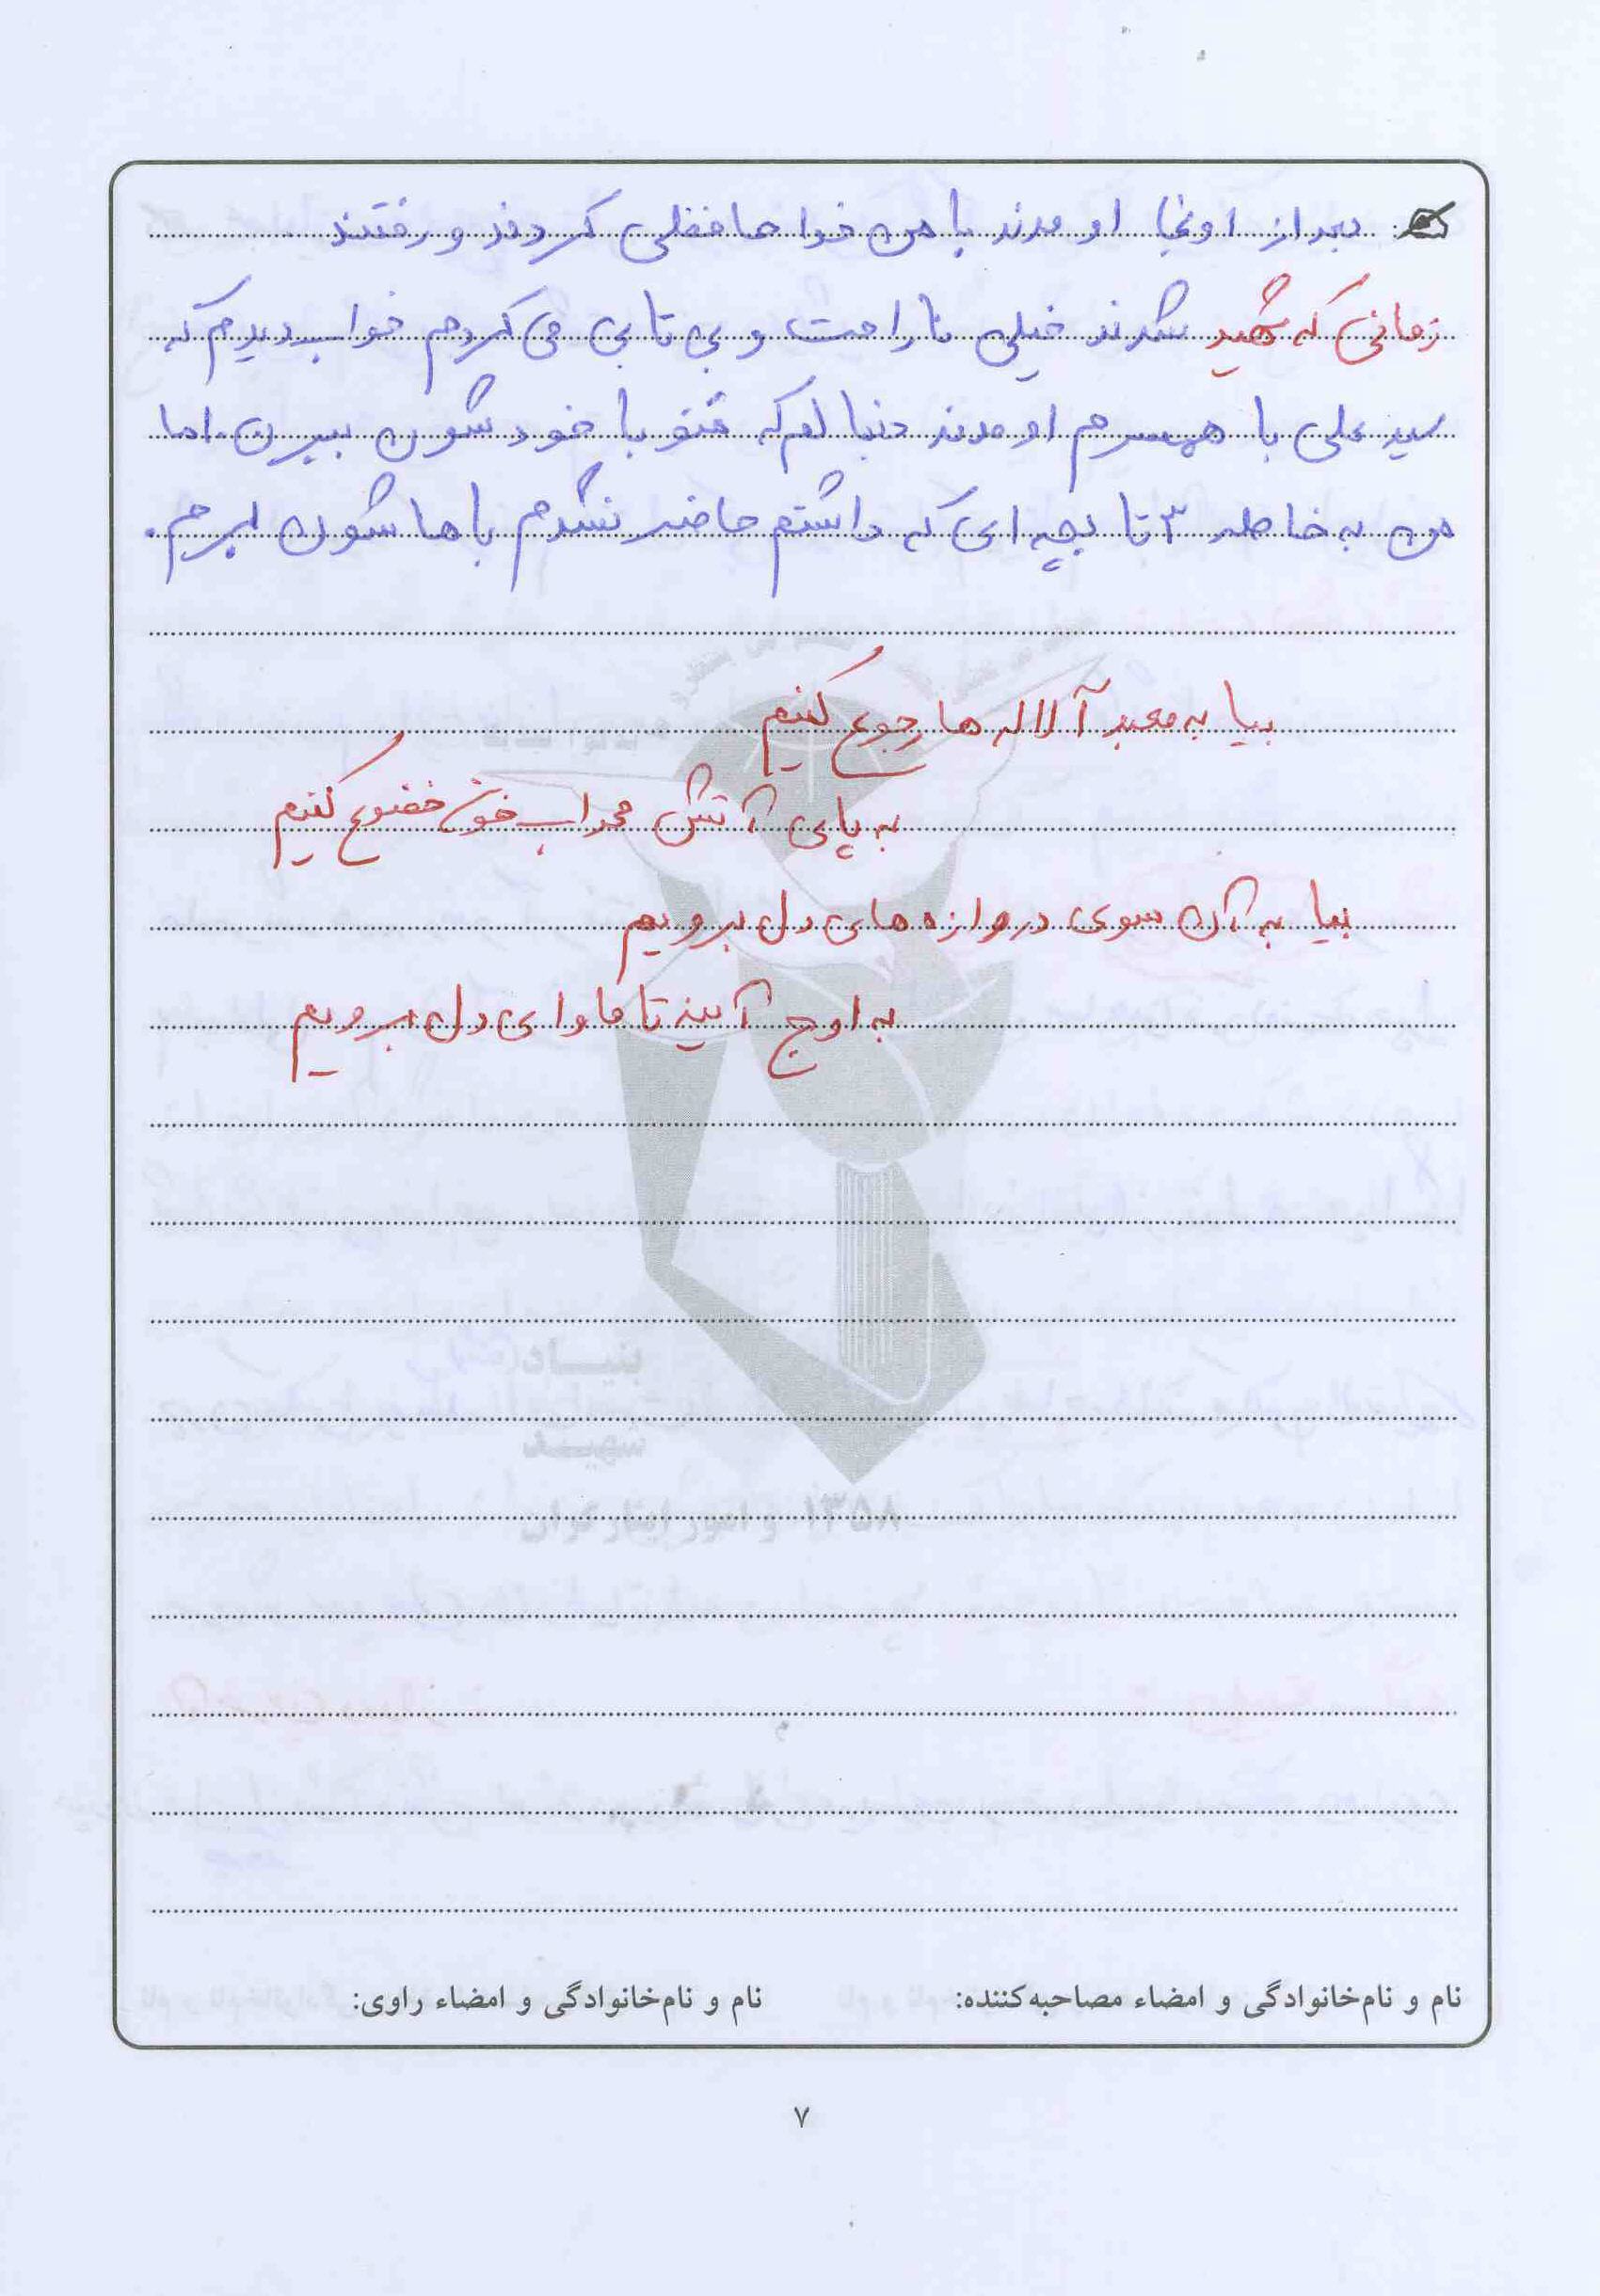 بعد از اونجا اومدند با من خدا حافظی کردند و رفتند
زمانی که شهید شدند خیلی ناراحت و بی تابی می کردم خواب دیدم که
سید علی با همسرم اومدند دنبالم که منو با خودشون ببرن. اما
من به خاطر ۳ تا بچه ای که داشتم حاضر نشدم باهاشون برم.
بیا به معبد آلاله ها رجوع کنیم
به پای آتش محراب خون خضوع کنیم
بیا به آن سوی دروازه های دل برویم
به اوج آینه تا ماوای دل برویم
بنیاد
شهید
و امور ایثارگران ۱۳۵۸
نام و نام‌خانوادگی و امضاء مصاحبه‌کننده: نام و نام‌خانوادگی و امضاء راوی:
۷